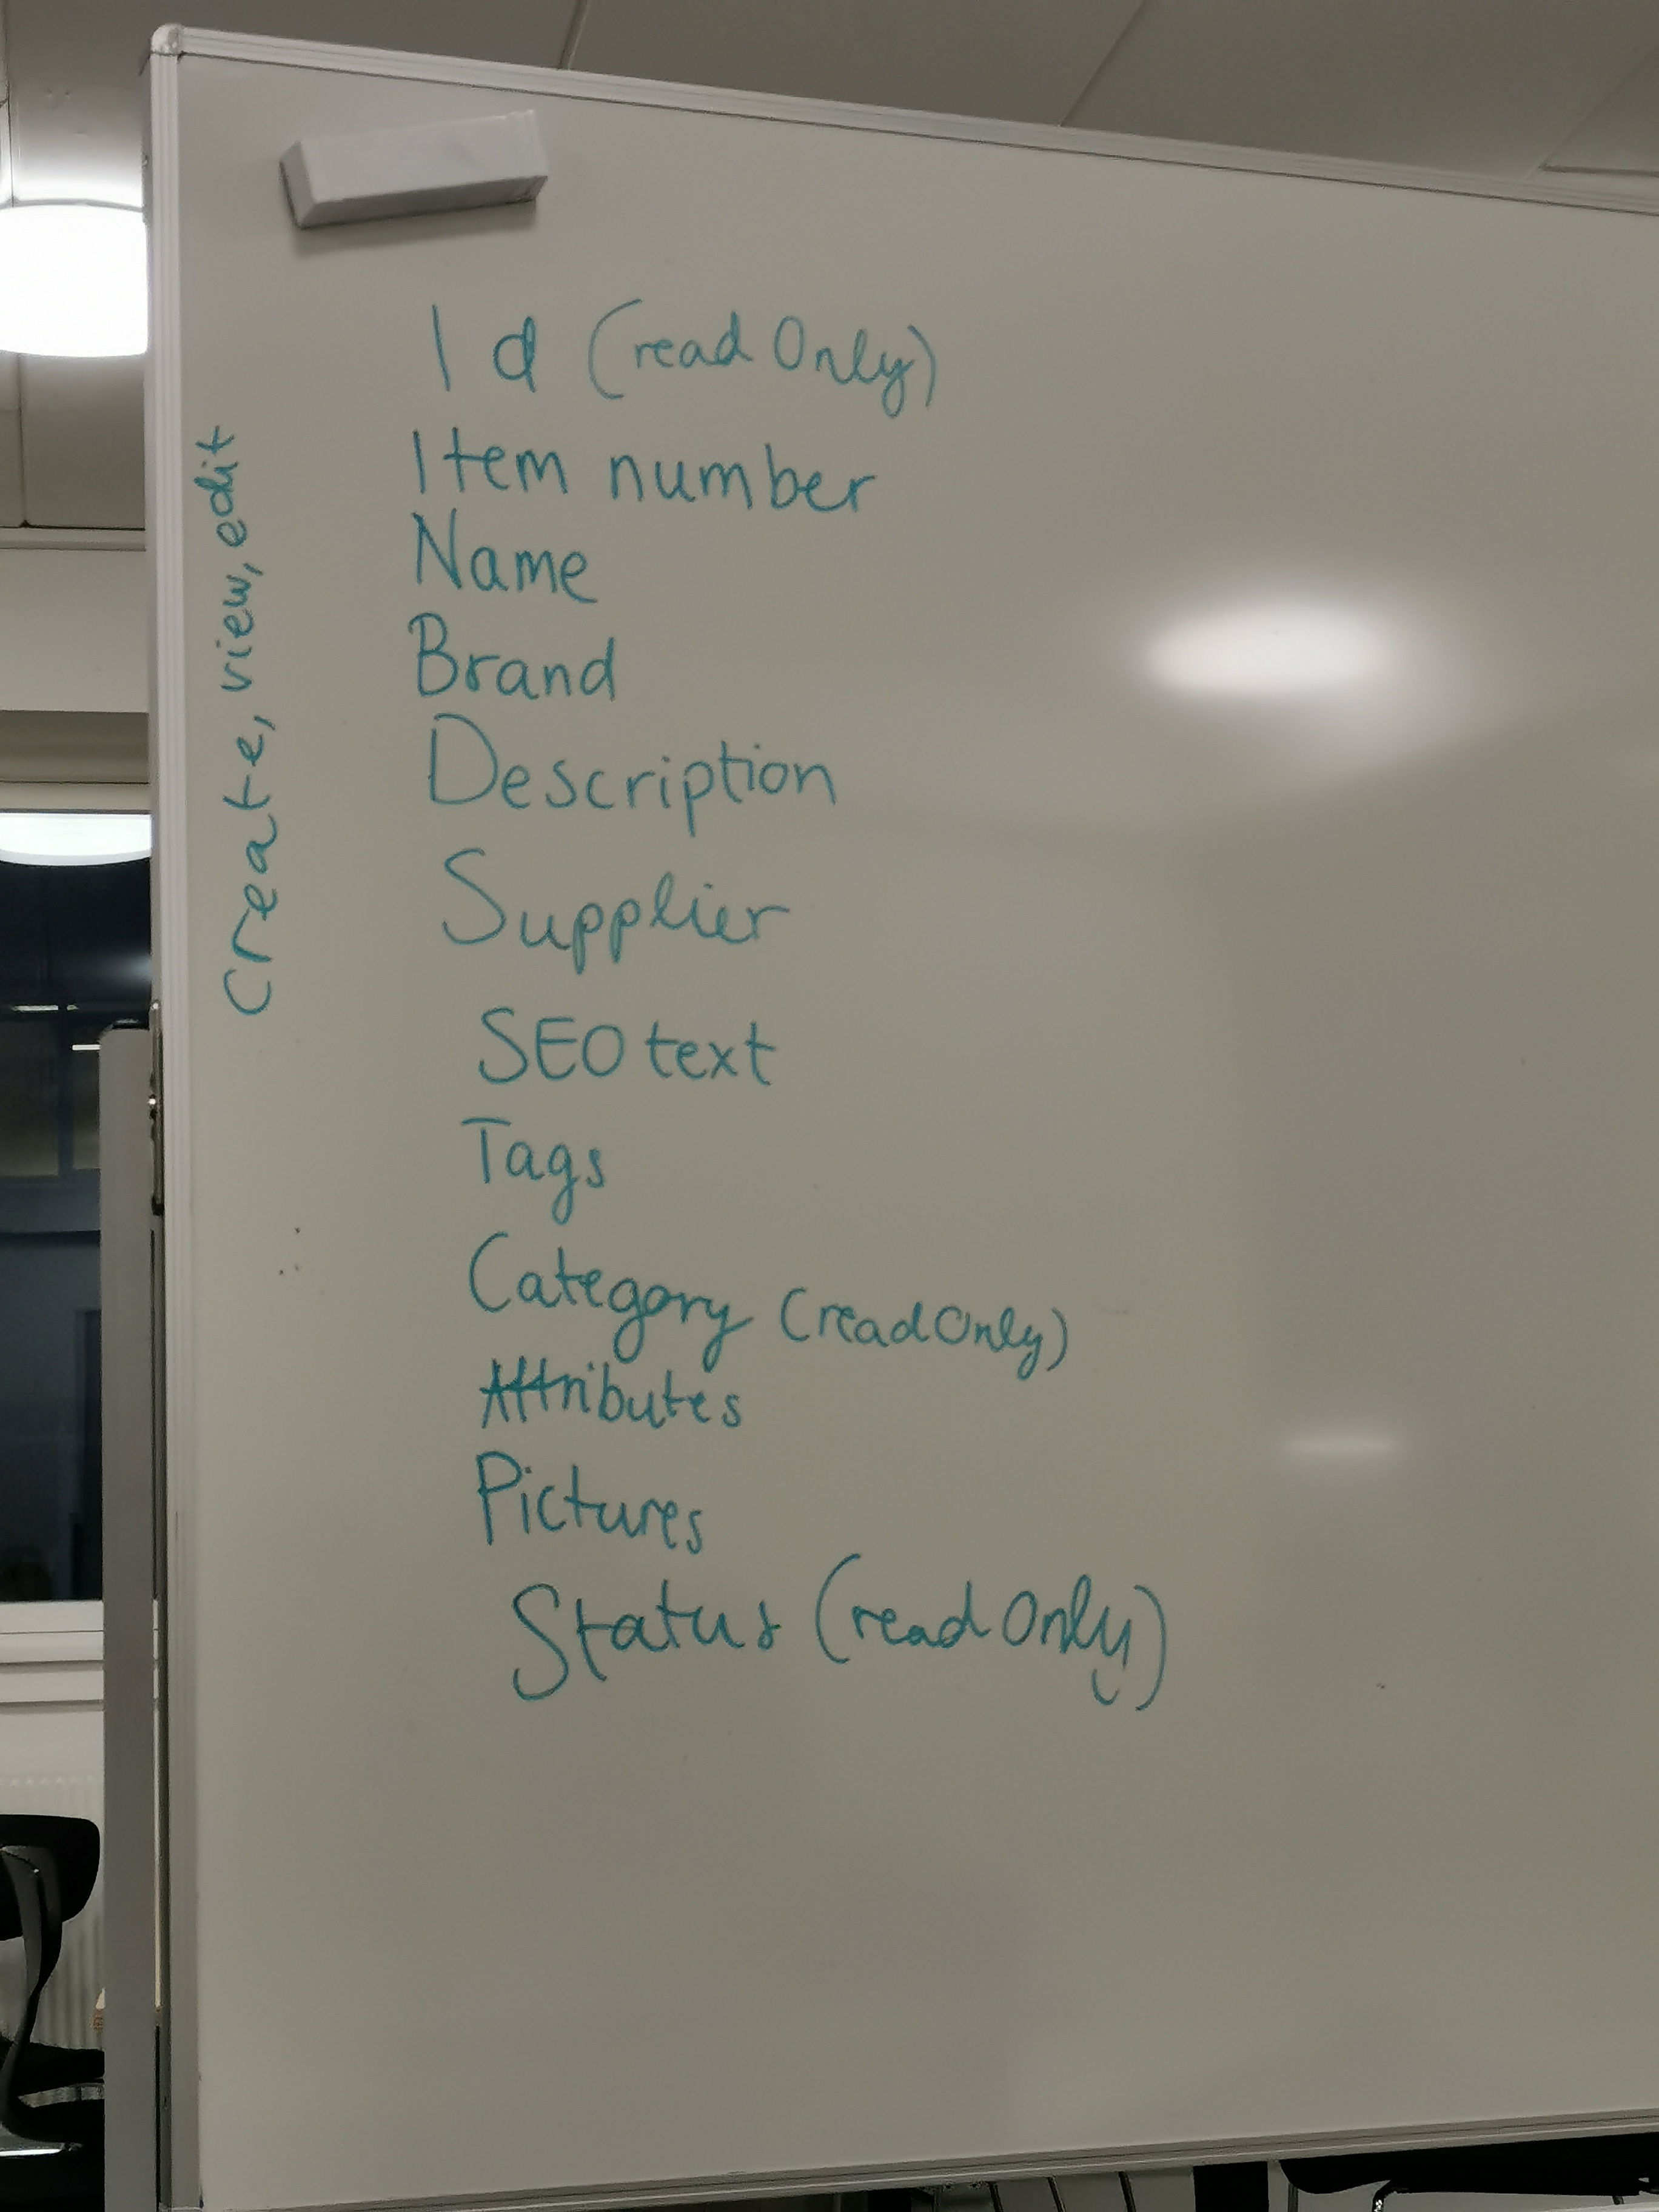 Create, view, edit
Id (read Only)
Item number
Name
Brand
Description
Supplier
SEO text
Tags
Category (read Only)
Attributes
Pictures
Status (read Only)